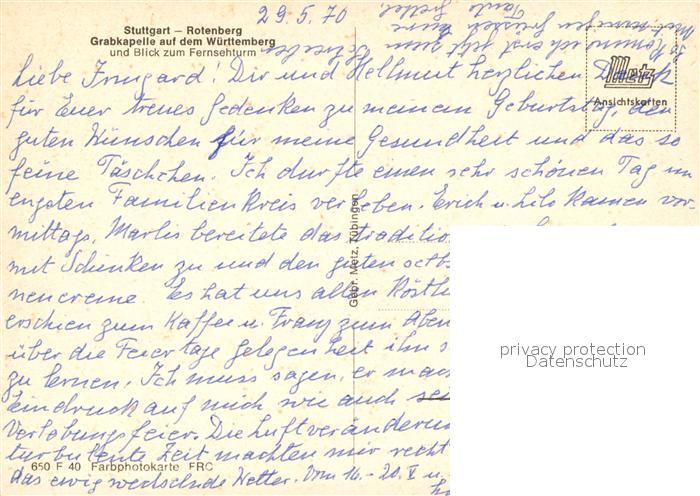 29.5.70
Stuttgart – Rotenberg
Grabkapelle auf dem Württemberg
und Blick zum Fernsehturm
Metz
Ansichtskarten
Liebe Irmgard! Dir und Hellmut herzlichen Dank
für Euer treues Gedenken zu meinem Geburtstag, den
guten Wünschen für meine Gesundheit und das so
feine Täschchen. Ich durfte einen sehr schönen Tag im
engsten Familienkreis verleben. Erich u. Lilo kamen vor-
mittags, Marlis bereitete das
mit Schinken zu und den guten
nencreme Es hat uns allen
erschien zum Kaffee u. Franz zum
über die Feiertage Gelegenheit ihn
zu lernen. Ich muss sagen, er
Eindruck auf mich wie auch
Verlobungsfeier. Die
turbulente Zeit machten mir recht
das ewig wechselnde Wetter. Vom 16.-20. V u.
Gebr. Metz, Tübingen
650 F 40 Farbphotokarte FRC
privacy protection
Datenschutz